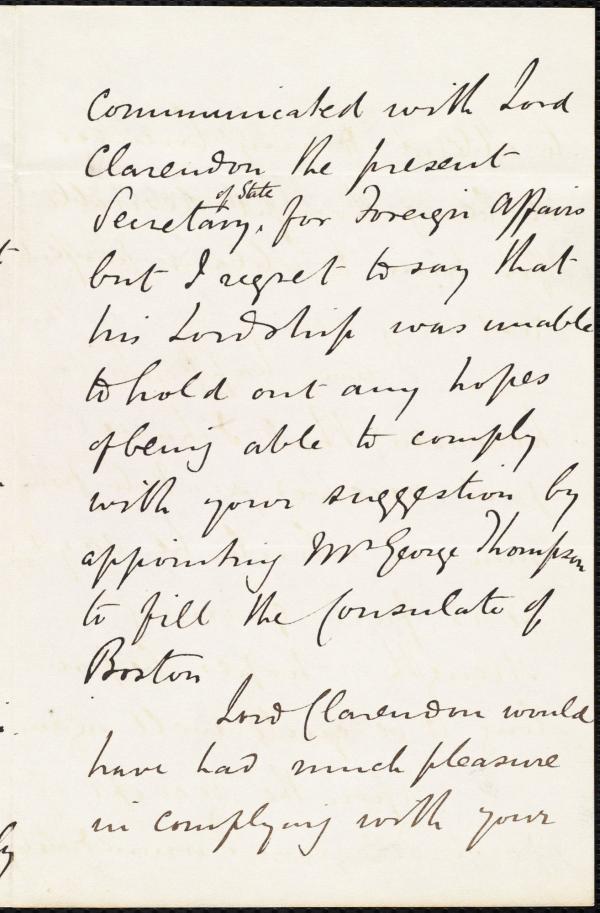 communicated with Lord
Clarendon the present
Secretary of State for Foreign Affairs
but I regret to say that
his Lordship was unable
to hold out any hopes
of being able to comply
with your suggestion by
appointing Mr George Thompson
to fill the Consulate of
Boston
Lord Clarendon would
have had much pleasure
in complying with your